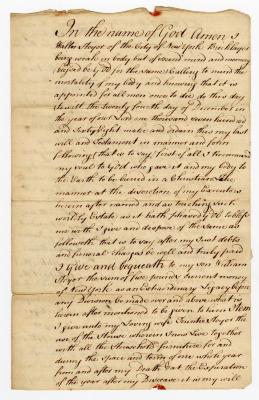 In the name of God Amen I
Walter Heyer of the City of New York Bricklayer
being weak in body but of sound mind and memory
blessed be God for the same Calling to mind the
mortality of my body and knowing that it is
appointed for all men once to die do this day
towit the twenty fourth day of December in
the year of our Lord one thousand seven hundred
and Sixty Eight make and ordain this my last
will and Testament in manner and form
following that is to say first of all I recommend
my soul to God who gave it and my body to
the Earth to be buried in a Christian like
manner at the discretion of my Executors
herein after named and as touching such
worldly Estate as it hath pleased God to bless
me with I give and dispose of the same as
followeth that is to say after my Just debts
and funeral charges be well and truly paid
I give and bequeath to my son William
Heyer the sum of five pounds Current money
of New York as an Extraordinary Legacy before
any Division be made over and above what is
herein after mentioned to be given to him Item
I give unto my Loving wife Jannetje Heyer the
use of the House wherein I now Live Together
with all the Household furniture for and
during the space and term of one whole year
from and after my Death but at the Expiration
of the year after my Decease it is my will